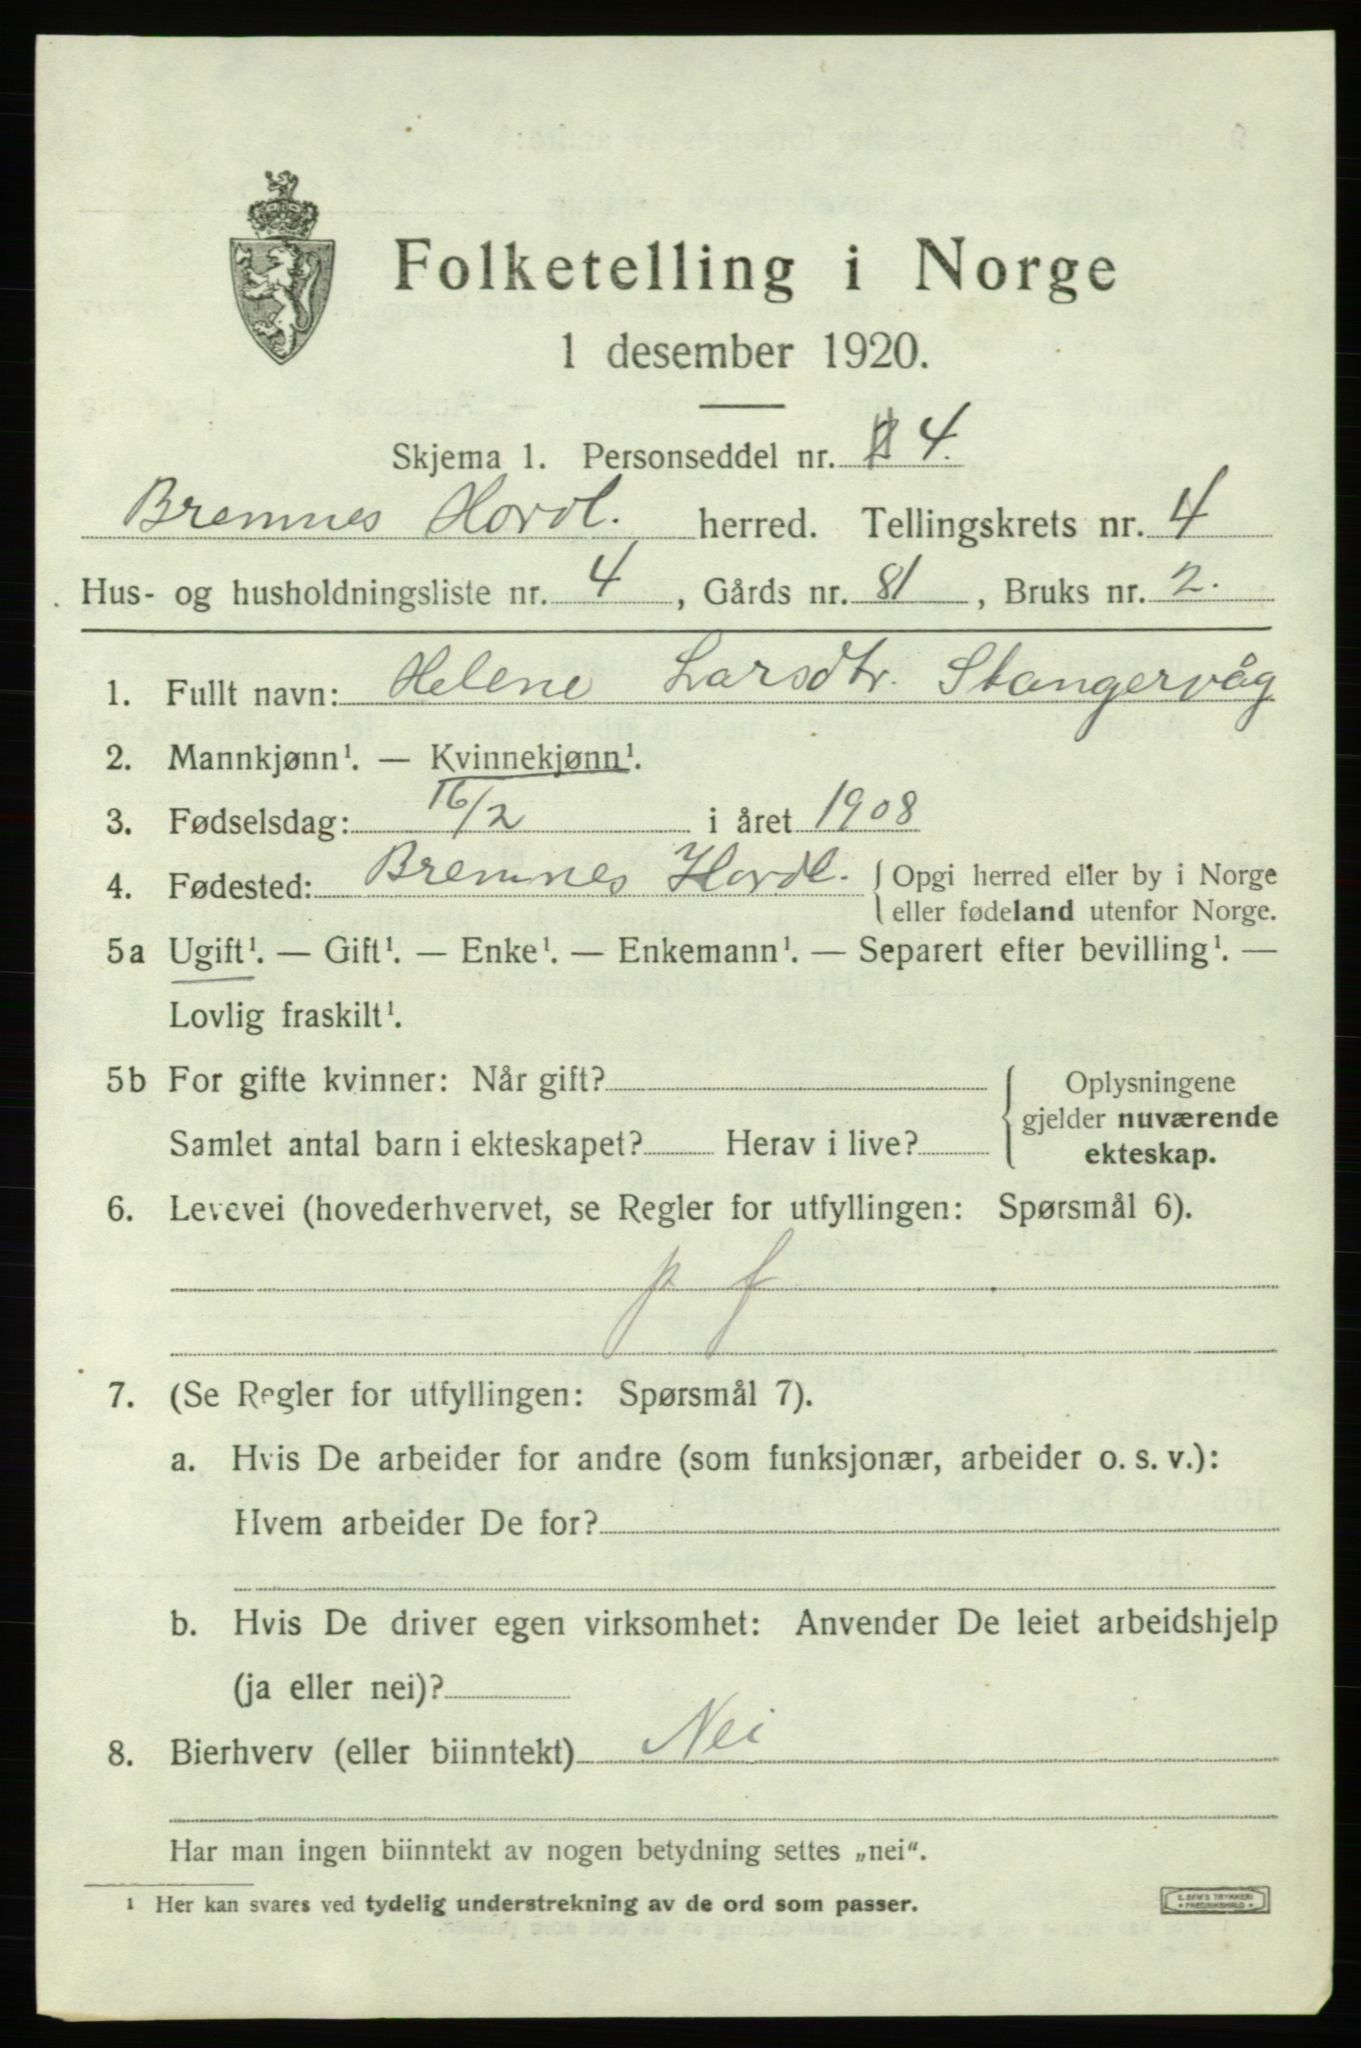 Folketelling i Norge
1 desember 1920.
Skjema 1. Personseddel nr. 4.
Bremnes Hordl. herred. Tellingskrets nr. 4
Hus- og husholdningsliste nr. 4, Gårds nr. 81, Bruks nr. 2.
1. Fullt navn: Helene Larsdtr. Stangervåg
2. Mannkjønn¹. — Kvinnekjønn¹.
3. Fødselsdag: 16/2 i året 1908
4. Fødested: Bremnes Hordl. { Opgi herred eller by i Norge
eller fødeland utenfor Norge.
5a Ugift¹. — Gift¹. — Enke¹. — Enkemann¹. — Separert efter bevilling¹. —
Lovlig fraskilt¹.
5b For gifte kvinner: Når gift?
Samlet antal barn i ekteskapet? Herav i live?
Oplysningene
gjelder nuværende
ekteskap.
6. Levevei (hovederhvervet, se Regler for utfyllingen: Spørsmål 6).
p f
7. (Se Regler for utfyllingen: Spørsmål 7).
a. Hvis De arbeider for andre (som funksjonær, arbeider o. s. v.):
Hvem arbeider De for?
b. Hvis De driver egen virksomhet: Anvender De leiet arbeidshjelp
(ja eller nei)?
8. Bierhverv (eller biinntekt) Nei
Har man ingen biinntekt av nogen betydning settes „nei“.
¹ Her kan svares ved tydelig understrekning av de ord som passer.
E. SEM'S TRYKKERI
FREDRIKSHALD